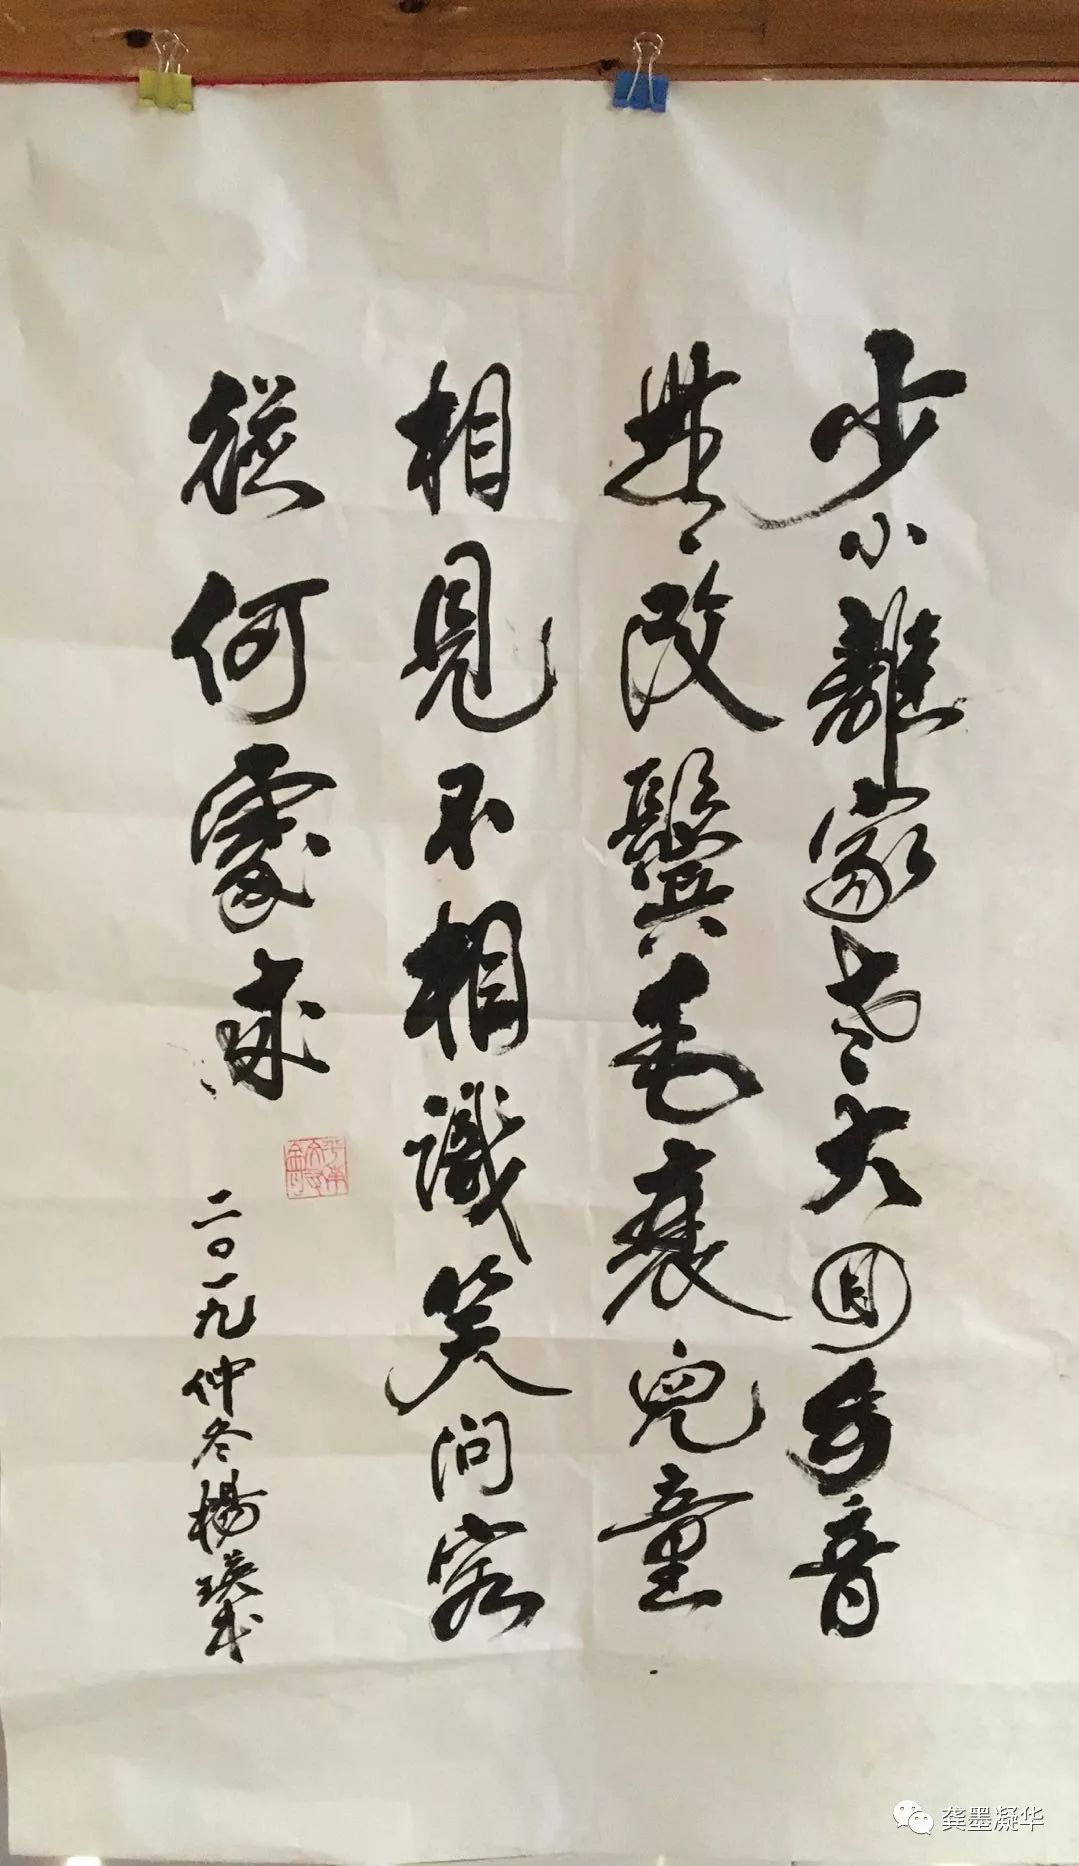 少小離家老大回乡音
無改鬓毛衰兒童
相見不相識笑问客
從何處來
二〇一九仲冬楊瑛
龚墨凝华